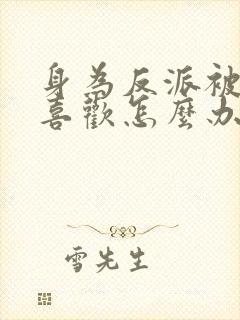 身為反派被
喜歡怎麼办
雪先生